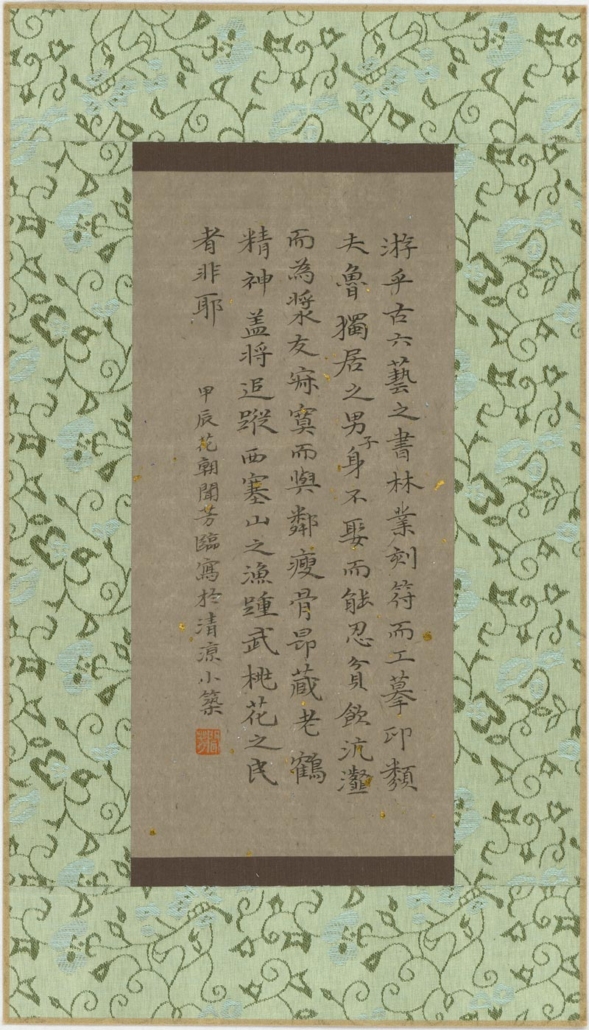 游乎古六藝之書林業刻符而工摹印類
夫魯獨居之男子身不娶而能忍貧飲沆瀣
而為漿友寂寞而與鄰瘦骨昂藏老鶴
精神盖将追蹤西塞山之漁踵武桃花之民
者非耶
甲辰花朝聞芳臨寫於清涼小築